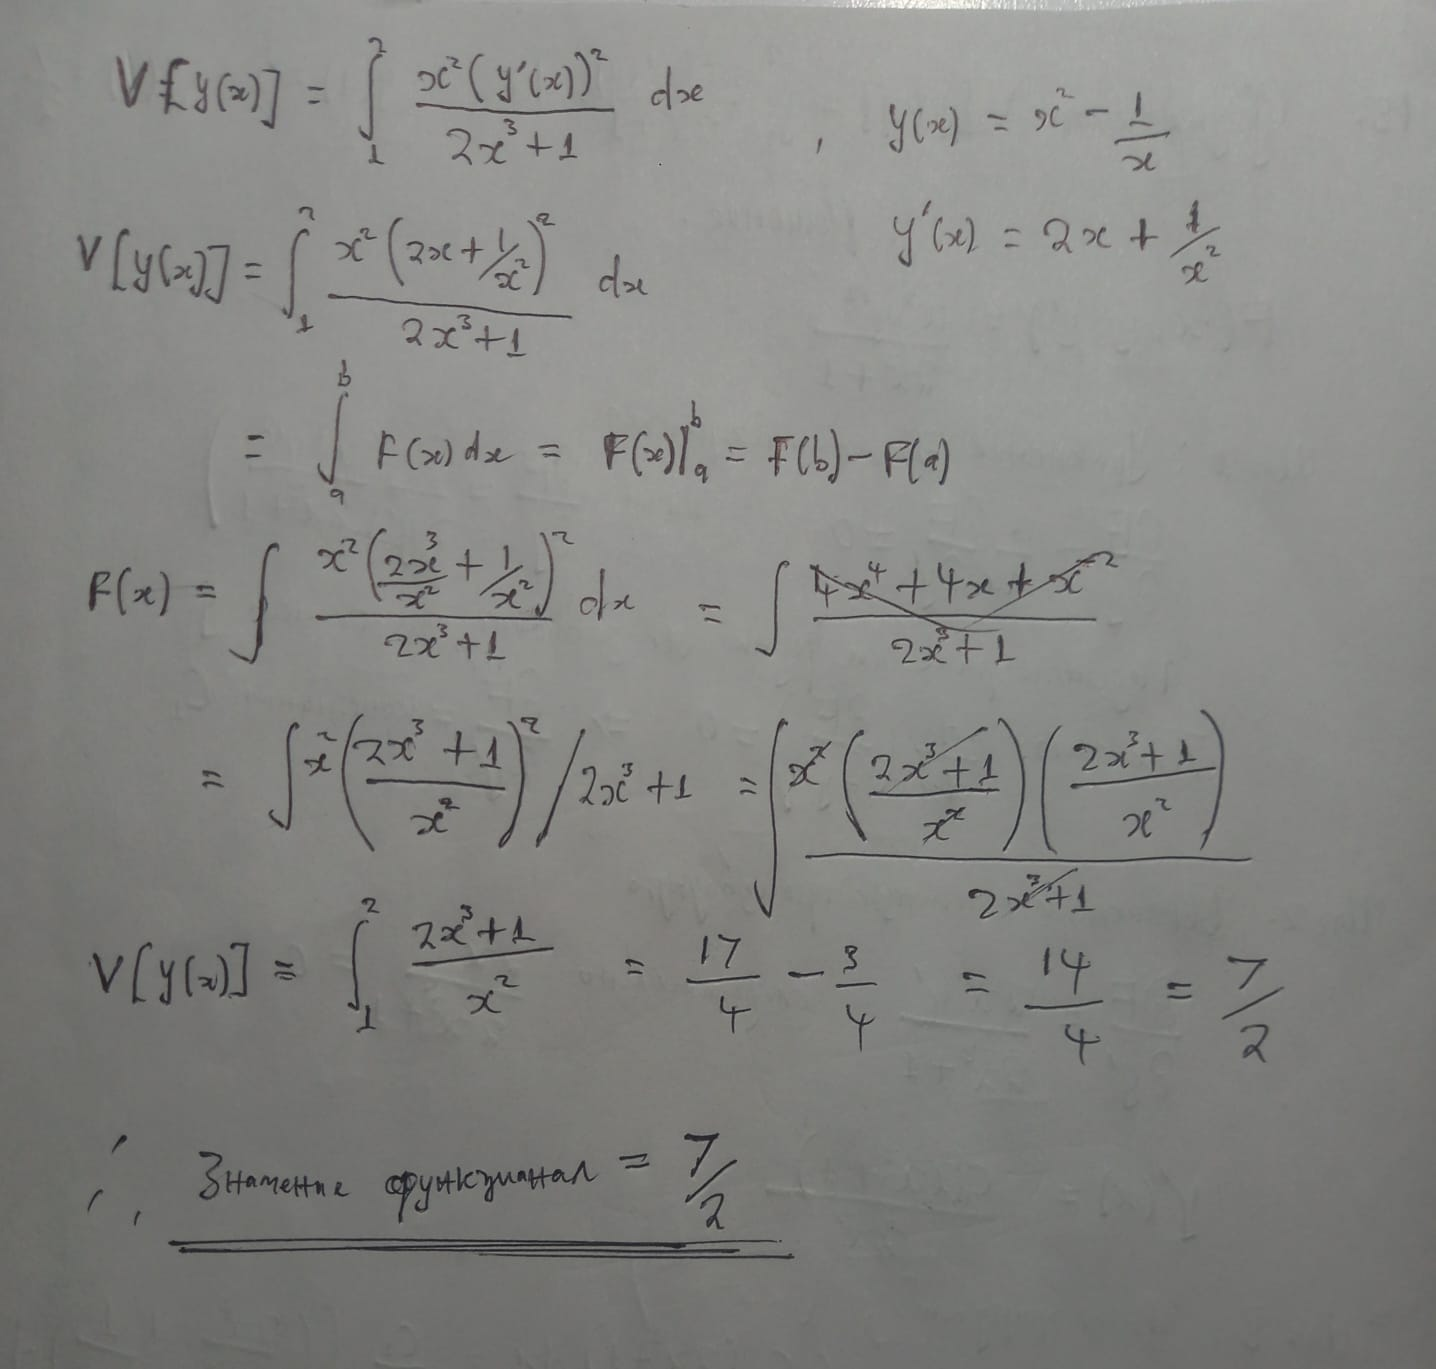 V[y(x)] = ∫₁² x²(y'(x))² / 2x³+1 dx , y(x) = x² - 1/x
y'(x) = 2x + 1/x²
V[y(x)] = ∫₁² x²(2x + 1/x²)² / 2x³+1 dx
= ∫ₐᵇ F(x) dx = F(x)|ₐᵇ = F(b) - F(a)
F(x) = ∫ x²(2x³/x² + 1/x²)² / 2x³+1 dx = ∫ 4x⁴ + 4x + x² / 2x³+1
= ∫ x²(2x³+1 / x²)² / 2x³+1 = ∫ x²(2x³+1 / x²)(2x³+1 / x²) / 2x³+1
V[y(x)] = ∫₁² 2x³+1 / x² = 17/4 - 3/4 = 14/4 = 7/2
∴ Значение функцианал = 7/2